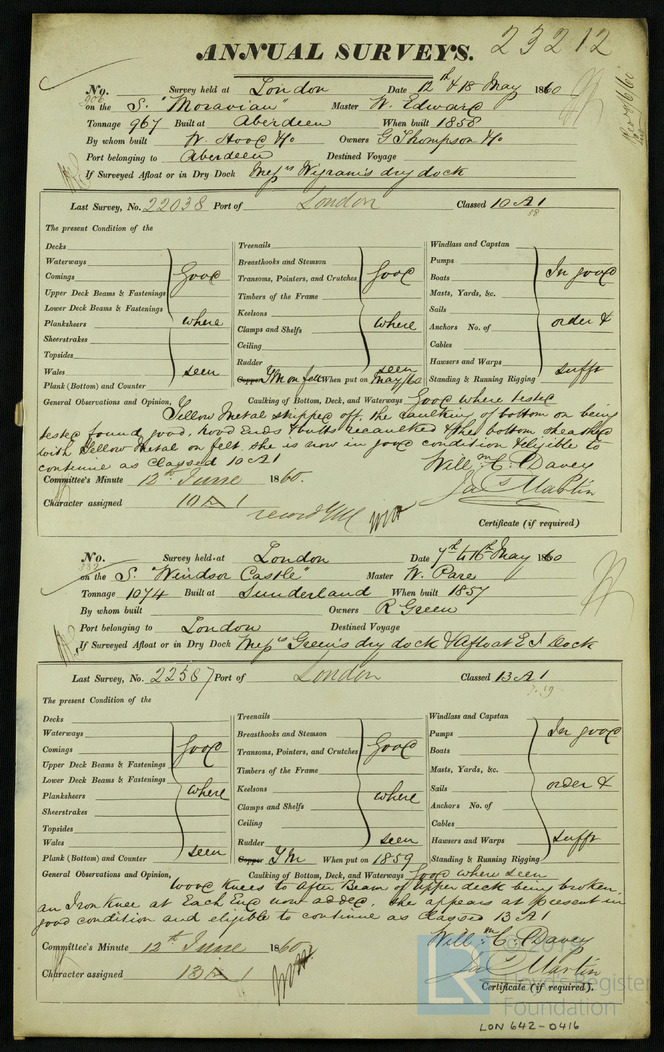 23212
ANNUAL SURVEYS.
No. Survey held at London Date 12th & 18 May 1860
on the S. "Moravian" Master W. Edward
Tonnage 967 Built at Aberdeen When built 1858
By whom built W. Hood & Co Owners G Thompson & Co
Port belonging to Aberdeen Destined Voyage
If Surveyed Afloat or in Dry Dock Messrs Wigram's dry dock
Last Survey, No. 22038 Port of London Classed 10 A 1
58
The present Condition of the
Decks
Waterways
Comings
Upper Deck Beams & Fastenings
Lower Deck Beams & Fastenings
Planksheers
Sheerstrakes
Topsides
Wales
Plank (Bottom) and Counter
Good
where
seen
Treenails
Breasthooks and Stemson
Transoms, Pointers, and Crutches
Timbers of the Frame
Keelsons
Clamps and Shelfs
Ceiling
Rudder
Copper YM on felt When put on May/60
Good
where
seen
Windlass and Capstan
Pumps
Boats
Masts, Yards, &c.
Sails
Anchors No. of
Cables
Hawsers and Warps
Standing & Running Rigging
In good
order &
sufft
General Observations and Opinion, Caulking of Bottom, Deck, and Waterways Good where tested
Yellow Metal stripped off, the caulking of bottom on being
tested found good, hood Ends & butts recaulked & the bottom sheathed
with Yellow Metal on felt, she is now in good condition & eligible to
continue as Classed 10 A 1
Willm. C. Davey
Jas Martin
Committee's Minute 12th June 1860.
Character assigned 10 A 1
record YM
Certificate (if required)
No. Survey held at London Date 7th & 16th May 1860
332
on the S. "Windsor Castle" Master W. Pare
Tonnage 1074 Built at Sunderland When built 1857
By whom built Owners R Green
Port belonging to London Destined Voyage
If Surveyed Afloat or in Dry Dock Messrs Green's dry dock & Afloat E I Dock
Last Survey, No. 22587 Port of London Classed 13 A 1
The present Condition of the
Decks
Waterways
Comings
Upper Deck Beams & Fastenings
Lower Deck Beams & Fastenings
Planksheers
Sheerstrakes
Topsides
Wales
Plank (Bottom) and Counter
Good
where
seen
Treenails
Breasthooks and Stemson
Transoms, Pointers, and Crutches
Timbers of the Frame
Keelsons
Clamps and Shelfs
Ceiling
Rudder
Copper YM When put on 1859
Good
where
seen
Windlass and Capstan
Pumps
Boats
Masts, Yards, &c.
Sails
Anchors No. of
Cables
Hawsers and Warps
Standing & Running Rigging
In good
order &
sufft
General Observations and Opinion, Caulking of Bottom, Deck, and Waterways Good where seen
Wood Knees to After Beam of Upper deck being broken,
an Iron Knee at Each End now added. She appears at present in
good condition and eligible to continue as Classed 13 A 1
Willm. C. Davey
Jas Martin
Committee's Minute 12th June 1860
Character assigned 13 A 1
Certificate (if required).
© 2019
LR Lloyd's Register
Foundation
LON 642-0416